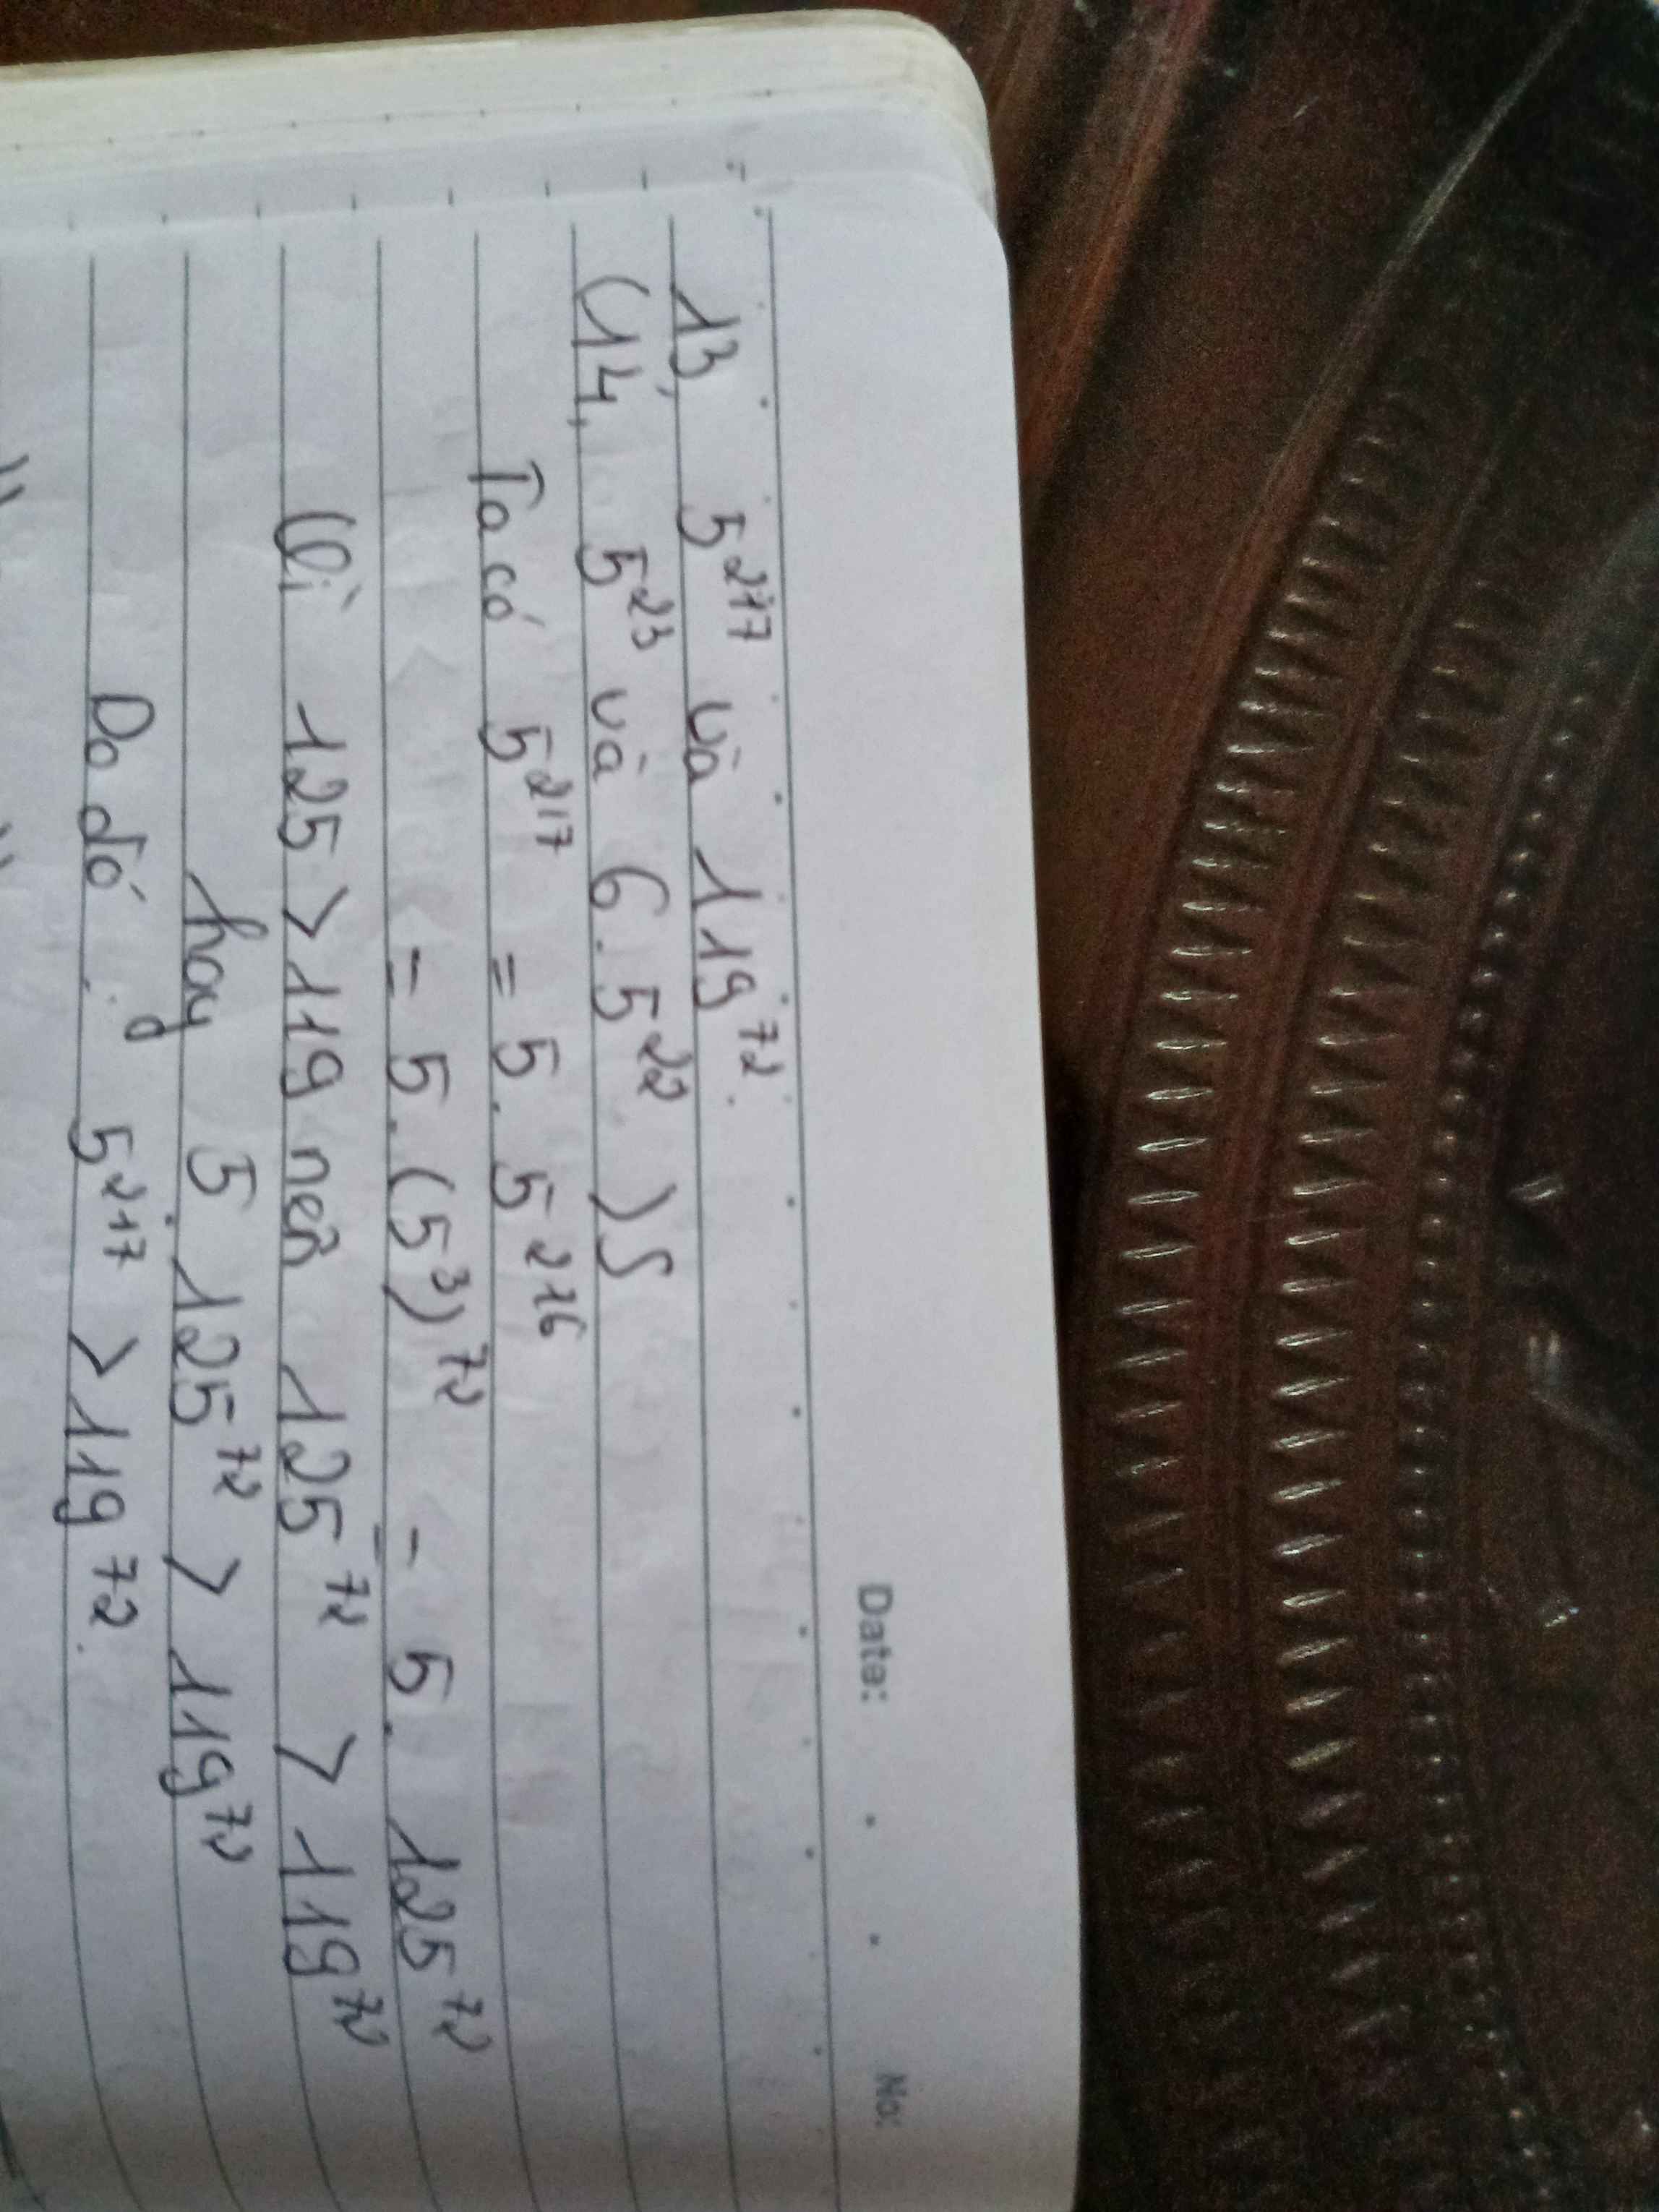 Date: No:
13, 5²¹⁷ và 119⁷²
(14, 5²³ và 6. 5²² ) S
Ta có 5²¹⁷ = 5. 5²¹⁶
= 5. (5³)⁷² = 5. 125⁷²
Vì 125 > 119 nên 125⁷² > 119⁷²
hay 5 125⁷² > 119⁷²
Do đó: 5²¹⁷ > 119⁷².